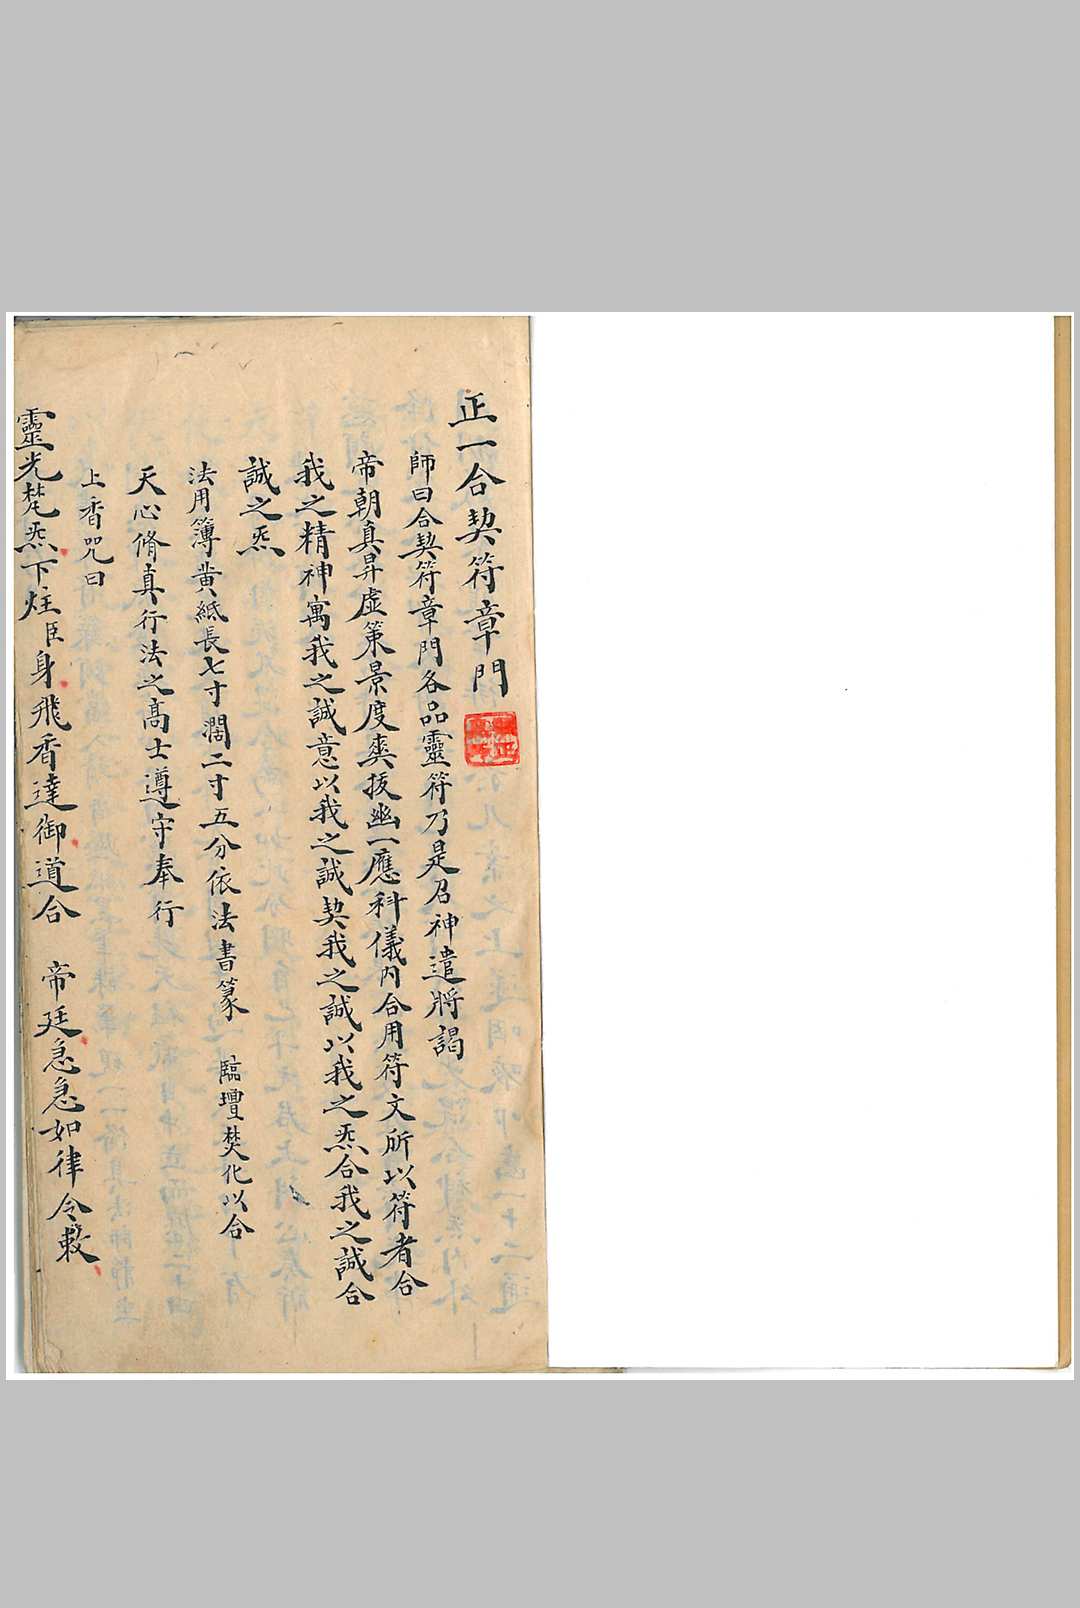 正一合契符章門
師曰合契符章門各品靈符乃是召神遣將謁
帝朝真昇虛策景度爽拔幽一應科儀內合用符文所以符者合
我之精神寓我之誠意以我之誠契我之誠以我之炁合我之誠合
誠之炁
法用簿黄紙長七寸濶二寸五分依法書篆 臨壇焚化以合
天心脩真行法之高士遵守奉行
上香咒曰
靈光梵炁下炷臣身飛香達御道合 帝廷急急如律令敕